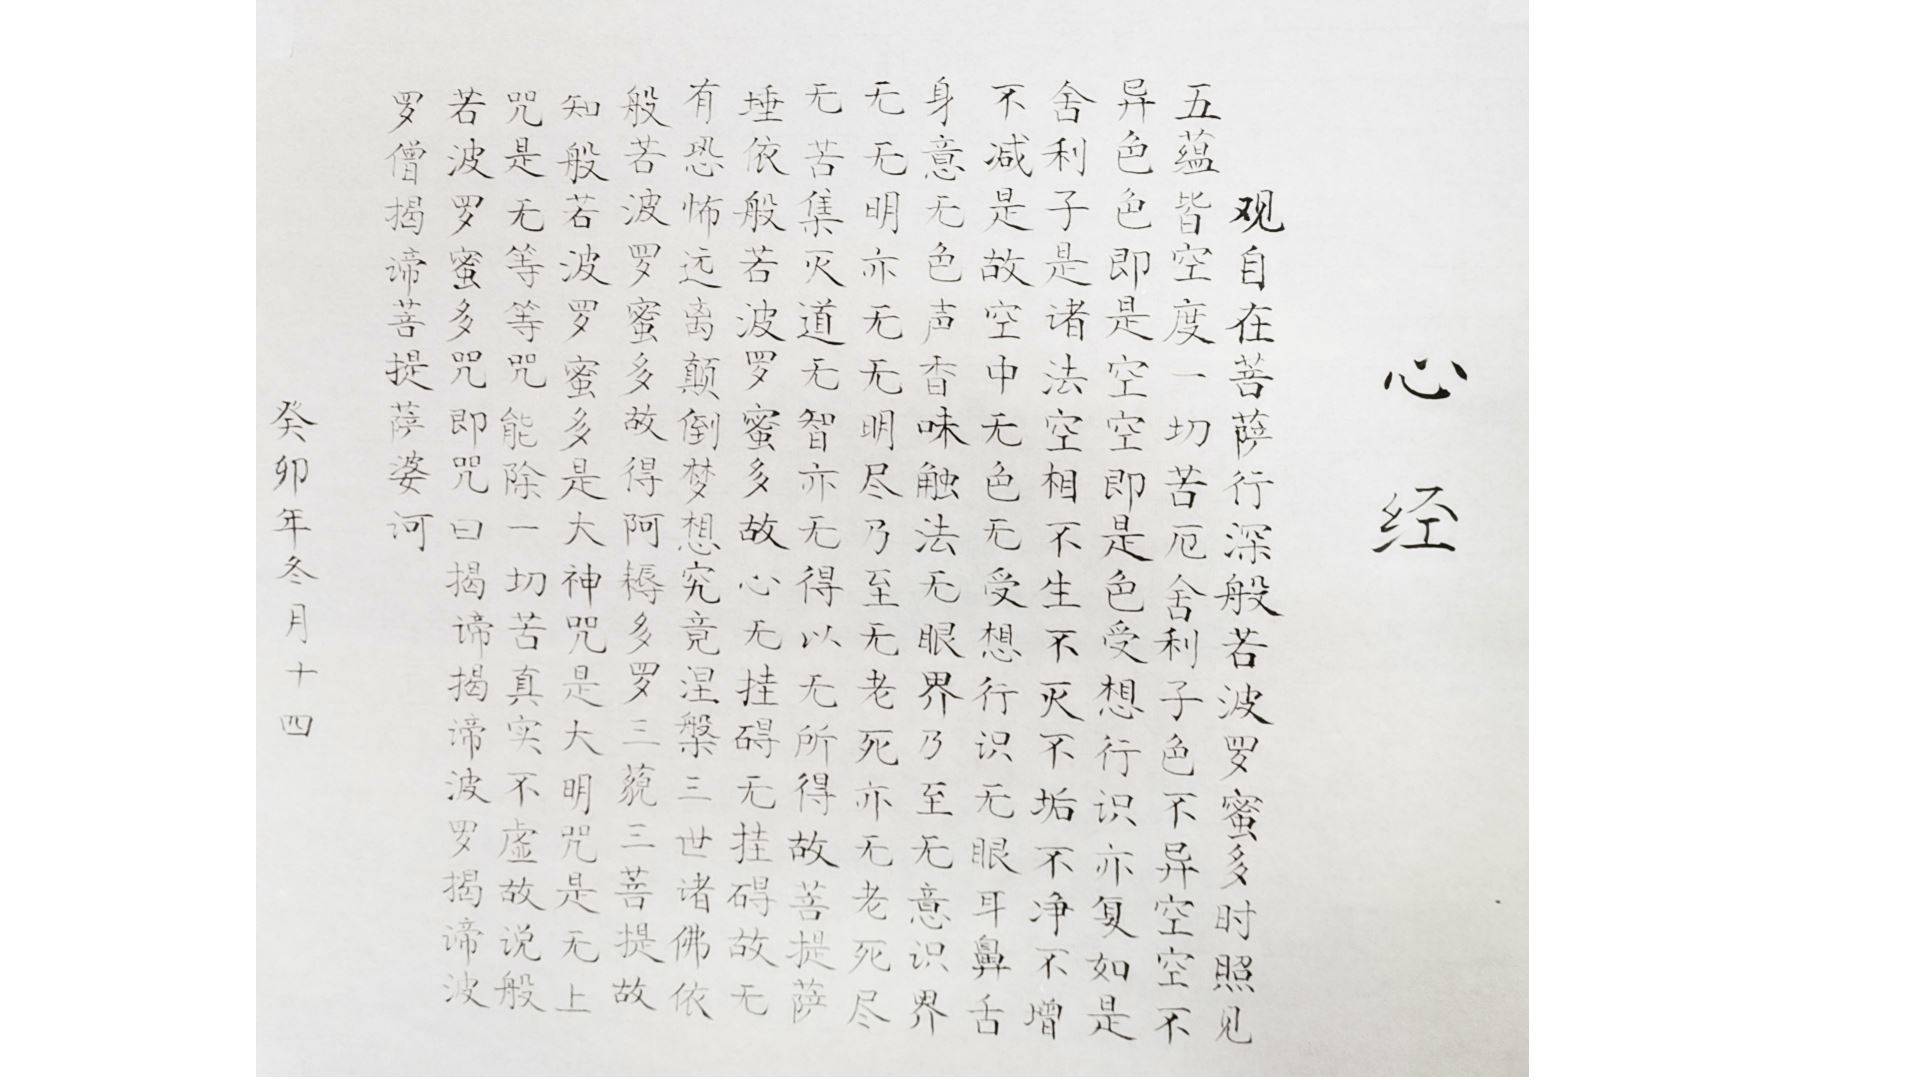 心经
观自在菩萨行深般若波罗蜜多时照见
五蕴皆空度一切苦厄舍利子色不异空空不
异色色即是空空即是色受想行识亦复如是
舍利子是诸法空相不生不灭不垢不净不增
不减是故空中无色无受想行识无眼耳鼻舌
身意无色声香味触法无眼界乃至无意识界
无无明亦无无明尽乃至无老死亦无老死尽
无苦集灭道无智亦无得以无所得故菩提萨
埵依般若波罗蜜多故心无挂碍无挂碍故无
有恐怖远离颠倒梦想究竟涅槃三世诸佛依
般若波罗蜜多故得阿耨多罗三藐三菩提故
知般若波罗蜜多是大神咒是大明咒是无上
咒是无等等咒能除一切苦真实不虚故说般
若波罗蜜多咒即咒曰揭谛揭谛波罗揭谛波
罗僧揭谛菩提萨婆诃
癸卯年冬月十四